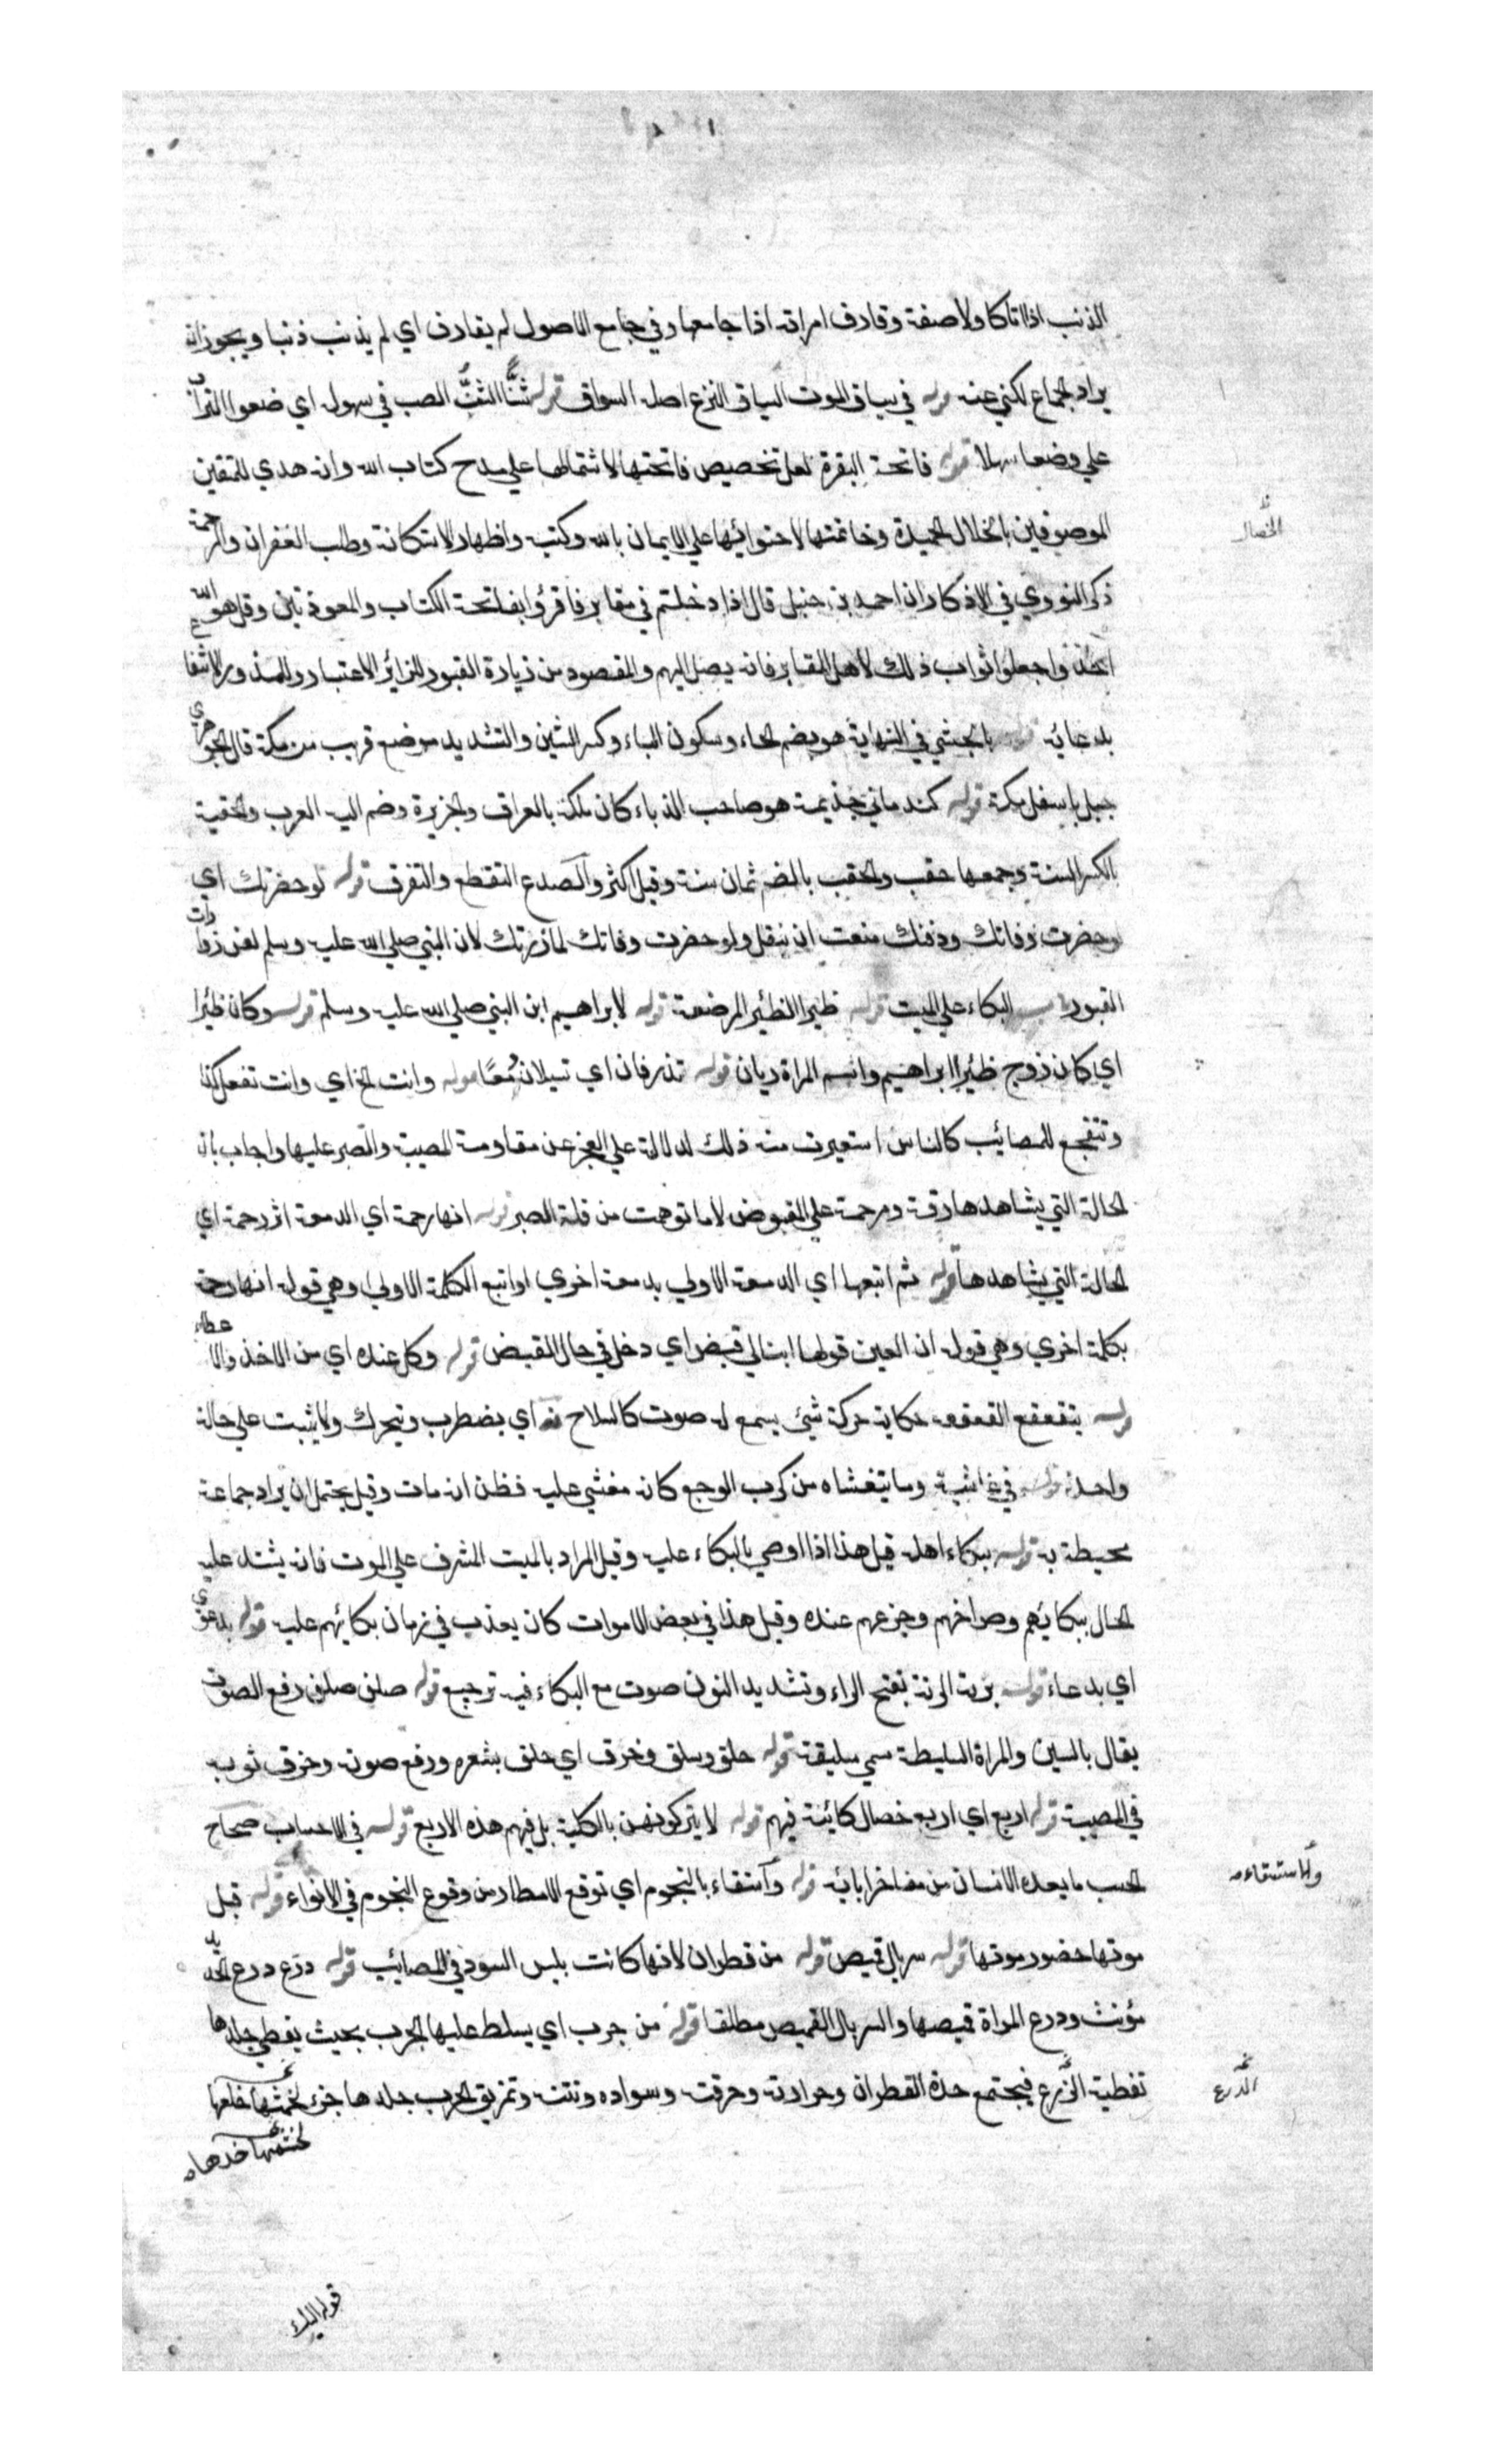 الذنب اذا اتاكا ولاصقه وقارف امراته اذا جامعها وفي جامع الاصول لم يقارف اي لم يذنب ذنبا ويجوز انه
يراد الجماع لكني عنه قوله في سياق الموت السياق النزع اصله السواق قوله شنًّا الشنُّ الصب في سهولة اي ضعوا التراب
علي وضعا سهلا قوله فاتحة البقرة لعل تخصيص فاتحتها لاشتمالها علي مدح كتاب الله وانه هدي للمتقين
الموصوفين بالخلال الحميدة وخاتمتها لاحتوائها علي الايمان بالله وكتبه واظهار الاستكانة وطلب الغفران والرحمة
الخصال
ذكر النووي في الاذكار ان احمد بن حنبل قال اذا دخلتم في مقابر فاقرؤا بفاتحة الكتاب والمعوذتين وقل هو الله
احد واجعلوا ثواب ذلك لاهل المقابر فانه يصل اليهم والمقصود من زيارة القبور للزائر الاعتبار وللمذور الانتفا
بدعائه قوله بالحبشي في النهاية هو بضم الحاء وسكون الباء وكسر الشين والتشديد موضع قريب من مكة قال الجوهري
جبل باسفل مكة قوله كندماني جذيمة هو صاحب الذباء كان ملكه بالعراق والجزيرة وضم اليه العرب والحقبة
بالكسر السنة وجمعها حقب والحقب بالضم ثمان سنة وقيل اكثر والتصدع التقطع والتفرق قوله لو حضرتك اي
لو حضرت وفاتك ودفنك منعت ان ينقل ولو حضرت وفاتك لما زرتك لان النبي صلي الله عليه وسلم لعن زوارات
القبور باب البكاء علي الميت قوله ظيرا الظئير المرضعة قوله لابراهيم ابن النبي صلي الله عليه وسلم قوله وكان ظئيرا
اي كان زوج ظئيرا ابراهيم واسم المراة ريان قوله تذرفان اي تسيلان دمعًا قوله وانت الخ اي وانت تفعل كذا
وتتفجع للمصائب كالناس استغيرت منه ذلك لدلالة علي العجز عن مقاومة المصيبة والصبر عليها واجاب بان
الحالة التي يشاهدها رقة ومرحمة علي المقبوض لا ما توهمت من قلة الصبر قوله انها رحمة اي الدمعة اثر رحمة اي
الحالة التي يشاهدها قوله ثم اتبعها اي الدمعة الاولي بدمعة اخري او اتبع الكلمة الاولي وهي قوله انها رحمة
بكلمة اخري وهي قوله ان العين قولها ابنا لي قبض اي دخل في حال القبض قوله وكل عنده اي من الاخذ والاعطاء
قوله يتقعقع القعقعه حكاية حركة شيئ يسمع له صوت كالسلاح اي يضطرب ويتحرك ولا يثبت علي حالة
واحدة قوله في غاشية وما يتغشاه من كرب الوجع كان مغشي عليه فظن انه مات وقيل يحتمل ان يراد جماعة
محيطة به قوله ببكاء اهله قيل هذا اذا اوصي بالبكاء عليه وقيل المراد بالميت المشرف علي الموت فانه يشتد عليه
الحال ببكائهم وصراخهم وجزعهم عنده وقيل هذا في بعض الاموات كان يعذب في زمان بكائهم عليه قوله بدعوي
اي بدعاء قوله برنة الرنة بفتح الراء وتشديد النون صوت مع البكاء فيه ترجيع قوله صلق صلق رفع الصوت
يقال بالسين والمراة السليطة سمي سليقة قوله حلق وسلق وخرق اي حلق بشعره ورفع صوته وخرق ثوبه
في المصيبة قوله اربع اي اربع خصال كائنة فيهم قوله لا يتركونهن بالكلية بل فيهم هذه الاربع قوله في الاحساب صحاح
الحسب ما يعده الانسان من مفاخر ابائه قوله واستقاء بالنجوم اي توقع الامطار من وقوع النجوم في الانواء قوله قبل
والاستسقاء
موتها حضور موتها قوله سربال قميص قوله من قطران لانها كانت يلبس السود في المصائب قوله درع درع الحديد
مؤنث ودرع المراة قميصها والسربال القميص مطلقا قوله من جرب اي يسلط عليها الجرب بحيث يغطي جلدها
تغطية الدرع فيجتمع حدة القطران وحرارته وحرقته وسواده ونتنه وتمزيق الجرب جلدها جزء لخمشها خلعها
الدرع
لخمشها خدها
قوله اليك